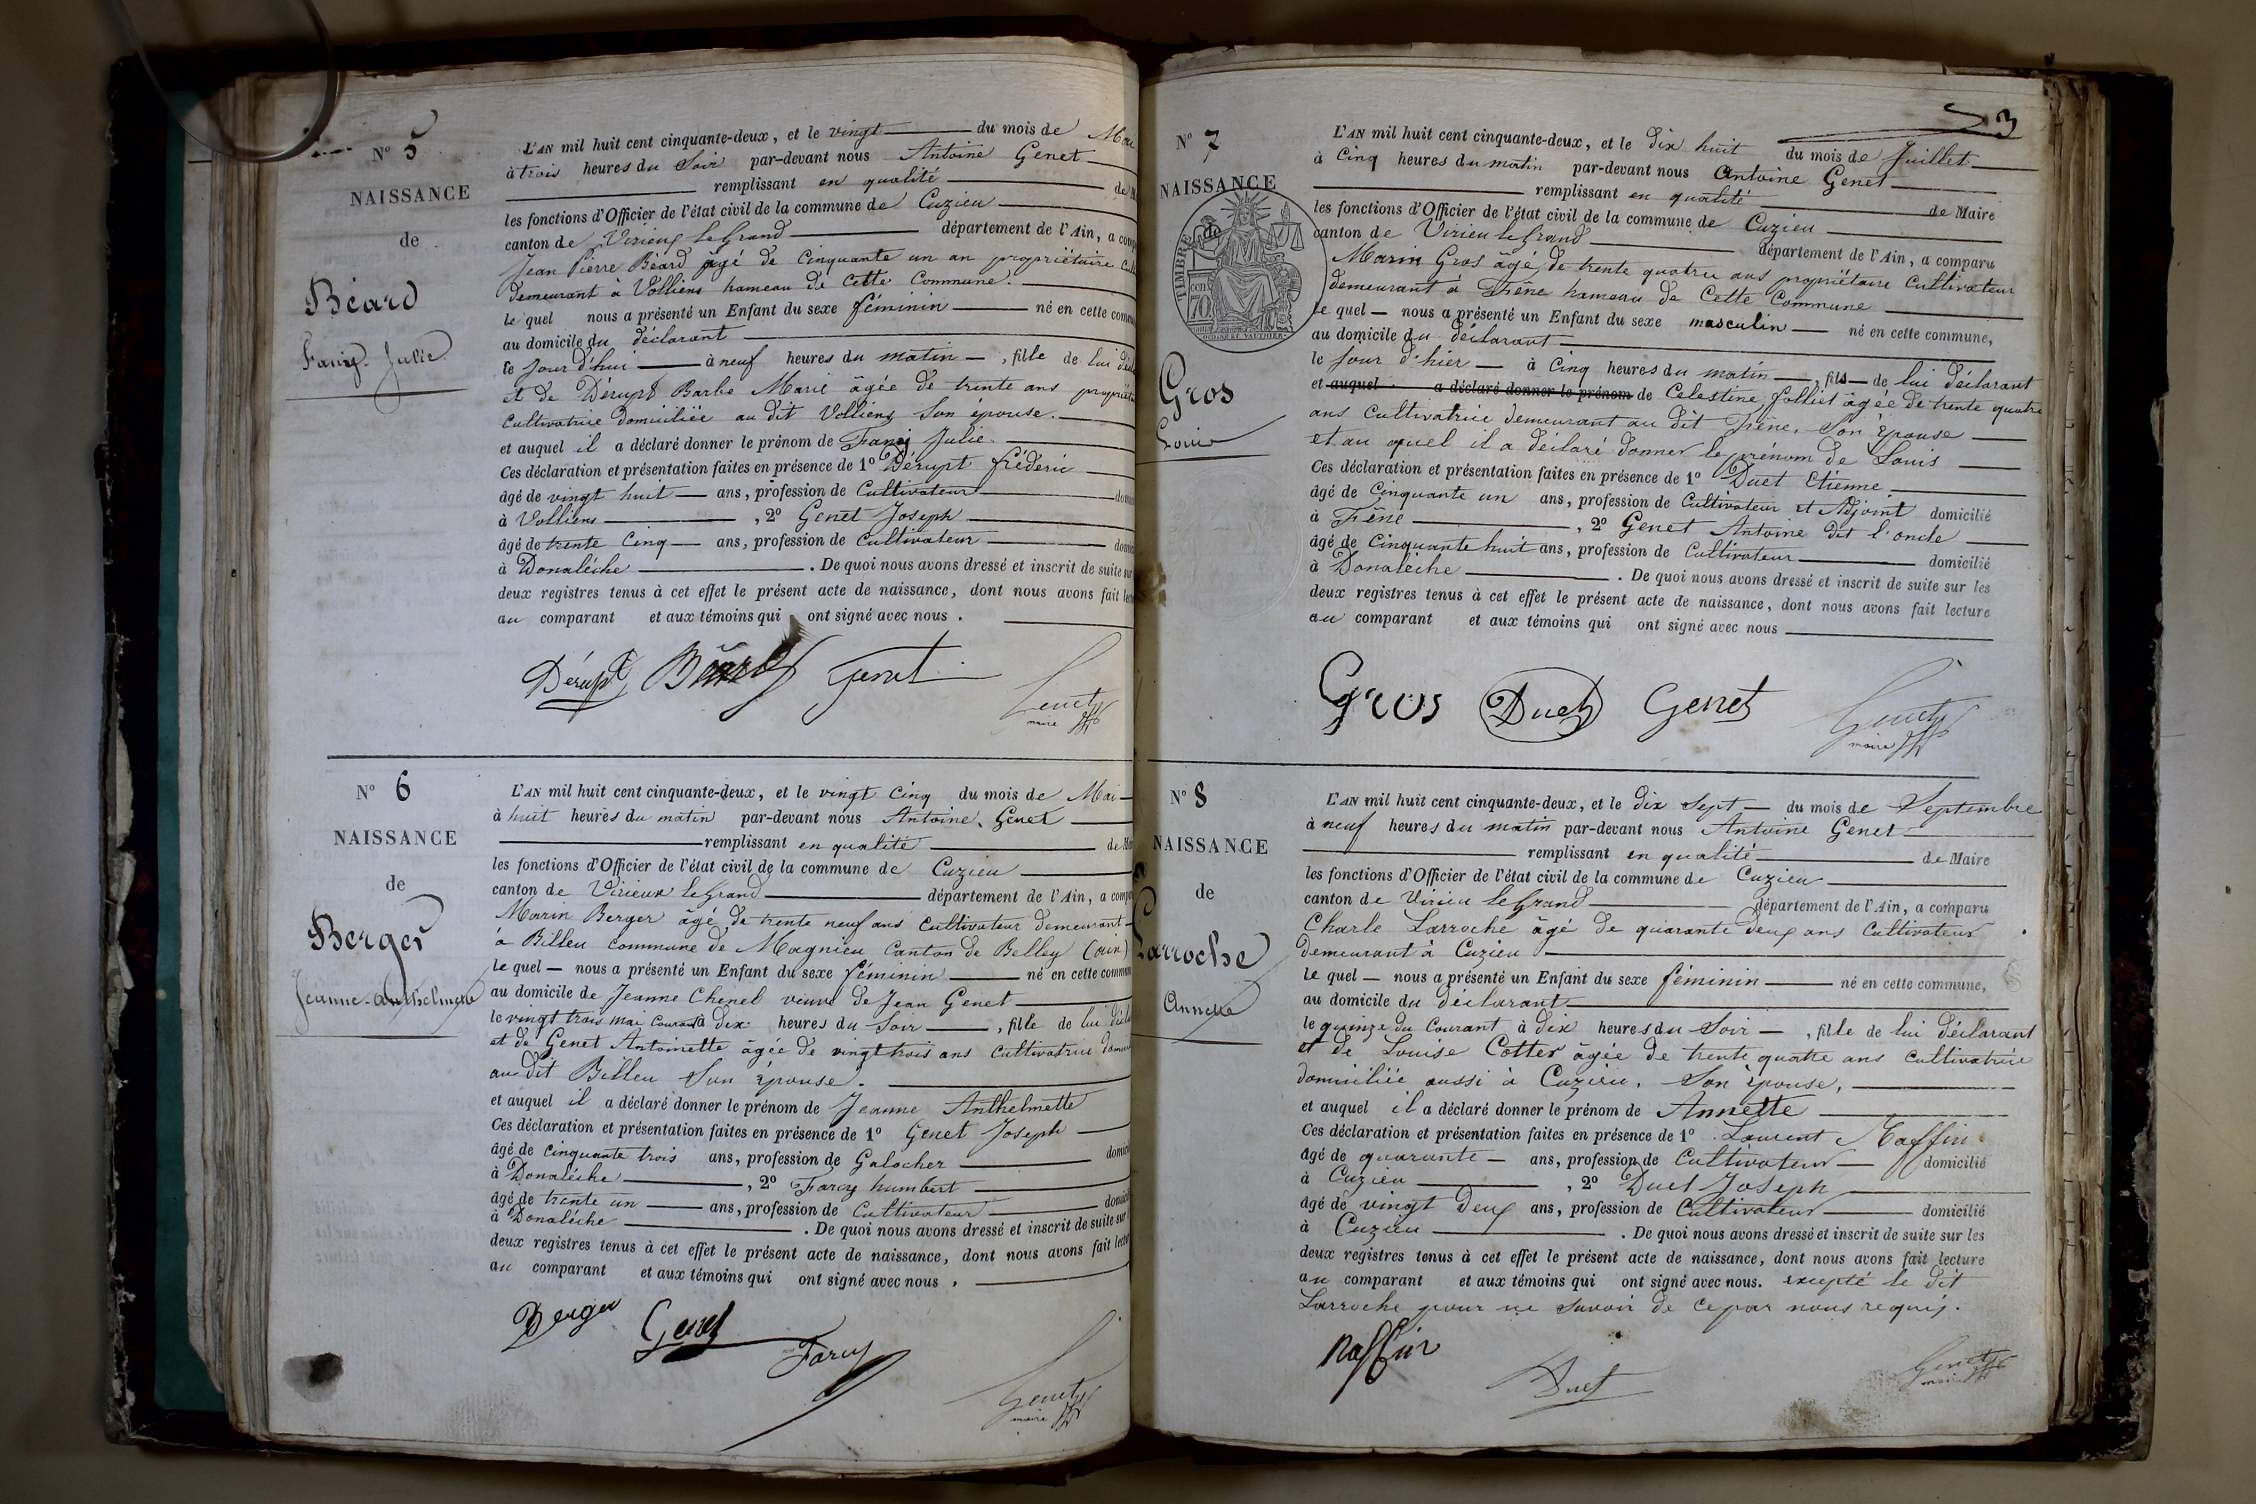 N° 5
NAISSANCE
de
Béard
Fany Julie
L'AN mil huit cent cinquante-deux, et le vingt du mois de Mai
à trois heures du Soir par-devant nous Antoine Genet
remplissant en qualité de M
les fonctions d'Officier de l'état civil de la commune de Cuzieu
canton de Virieux le Grand département de l'Ain, a comp
Jean Pierre Béard âgé de Cinquante un an propriétaire Cul
demeurant à Volliens hameau de Cette Commune.
le quel nous a présenté un Enfant du sexe féminin né en cette comm
au domicile du déclarant
le Jour d'hui à neuf heures du matin , fille de lui décla
et de Dérupt Barbe Marie âgée de trente ans propriéta
Cultivatrice domiciliée au dit Volliens Son épouse.
et auquel il a déclaré donner le prénom de Fany Julie.
Ces déclaration et présentation faites en présence de 1° Dérupt frédéric
âgé de vingt huit ans, profession de Cultivateur domi
à Volliens , 2° Genet Joseph
âgé de trente Cinq ans, profession de Cultivateur domi
à Donaléche . De quoi nous avons dressé et inscrit de suite sur
deux registres tenus à cet effet le présent acte de naissance, dont nous avons fait lect
au comparant et aux témoins qui ont signé avec nous .
Dérupt Béard Genet Genet
maire
N° 6
NAISSANCE
de
Berger
Jeanne-Anthelmette
L'AN mil huit cent cinquante-deux, et le vingt Cinq du mois de Mai
à huit heures du matin par-devant nous Antoine Genet
remplissant en qualité de Mai
les fonctions d'Officier de l'état civil de la commune de Cuzieu
canton de Virieux le Grand département de l'Ain, a compa
Marin Berger âgé de trente neuf ans Cultivateur demeurant
à Billeu Commune de Magnieu Canton de Belley (ain)
le quel nous a présenté un Enfant du sexe féminin né en cette commun
au domicile de Jeanne Chenel veuve de Jean Genet
le vingt trois mai Courant à dix heures du Soir , fille de lui décla
et de Genet Antoinette âgée de vingt trois ans Cultivatrice demeu
au dit Billeu Son épouse.
et auquel il a déclaré donner le prénom de Jeanne Anthelmette
Ces déclaration et présentation faites en présence de 1° Genet Joseph
âgé de Cinquante trois ans, profession de Galocher domici
à Donaléche , 2° Farcy humbert
âgé de trente un ans, profession de Cultivateur domici
à Donaléche . De quoi nous avons dressé et inscrit de suite sur
deux registres tenus à cet effet le présent acte de naissance, dont nous avons fait lectur
au comparant et aux témoins qui ont signé avec nous .
Berger Genet Farcy Genet
maire
3
N° 7
NAISSANCE
de
TIMBRE
70
Gros
Louis
L'AN mil huit cent cinquante-deux, et le dix huit du mois de Juillet
à Cinq heures du matin par-devant nous Antoine Genet
remplissant en qualité de Maire
les fonctions d'Officier de l'état civil de la commune de Cuzieu
canton de Virieu le Grand département de l'Ain, a comparu
Marin Gros âgé de trente quatre ans propriétaire Cultivateur
demeurant à Frêne hameau de Cette Commune
le quel nous a présenté un Enfant du sexe masculin né en cette commune,
au domicile du déclarant
le Jour d'hier à Cinq heures du matin , fils de lui déclarant
et auquel a déclaré donner le prénom de Celestine folliet âgée de trente quatre
ans Cultivatrice demeurant au dit Frêne, Son Epouse
et au quel il a déclaré donner le prénom de Louis
Ces déclaration et présentation faites en présence de 1° Duet Etienne
âgé de Cinquante un ans, profession de Cultivateur et Adjoint domicilié
à Frêne , 2° Genet Antoine dit l'oncle
âgé de Cinquante huit ans, profession de Cultivateur domicilié
à Donaléche . De quoi nous avons dressé et inscrit de suite sur les
deux registres tenus à cet effet le présent acte de naissance, dont nous avons fait lecture
au comparant et aux témoins qui ont signé avec nous
Gros Duet Genet Genet
maire
N° 8
NAISSANCE
de
Larroche
Annette
L'AN mil huit cent cinquante-deux, et le dix Sept du mois de Septembre
à neuf heures du matin par-devant nous Antoine Genet
remplissant en qualité de Maire
les fonctions d'Officier de l'état civil de la commune de Cuzieu
canton de Virieu le Grand département de l'Ain, a comparu
Charle Larroche âgé de quarante deux ans Cultivateur
demeurant à Cuzieu
le quel nous a présenté un Enfant du sexe féminin né en cette commune,
au domicile du déclarant
le quinze du Courant à dix heures du Soir , fille de lui déclarant
et de Louise Cotter âgée de trente quatre ans Cultivatrice
domiciliée aussi à Cuzieu, Son épouse,
et auquel il a déclaré donner le prénom de Annette
Ces déclaration et présentation faites en présence de 1° Laurent Raffin
âgé de quarante ans, profession de Cultivateur domicilié
à Cuzieu , 2° Duet Joseph
âgé de vingt deux ans, profession de Cultivateur domicilié
à Cuzieu . De quoi nous avons dressé et inscrit de suite sur les
deux registres tenus à cet effet le présent acte de naissance, dont nous avons fait lecture
au comparant et aux témoins qui ont signé avec nous. excepté le dit
Larroche pour ne Savoir de ce par nous requis.
Raffin Duet Genet
maire